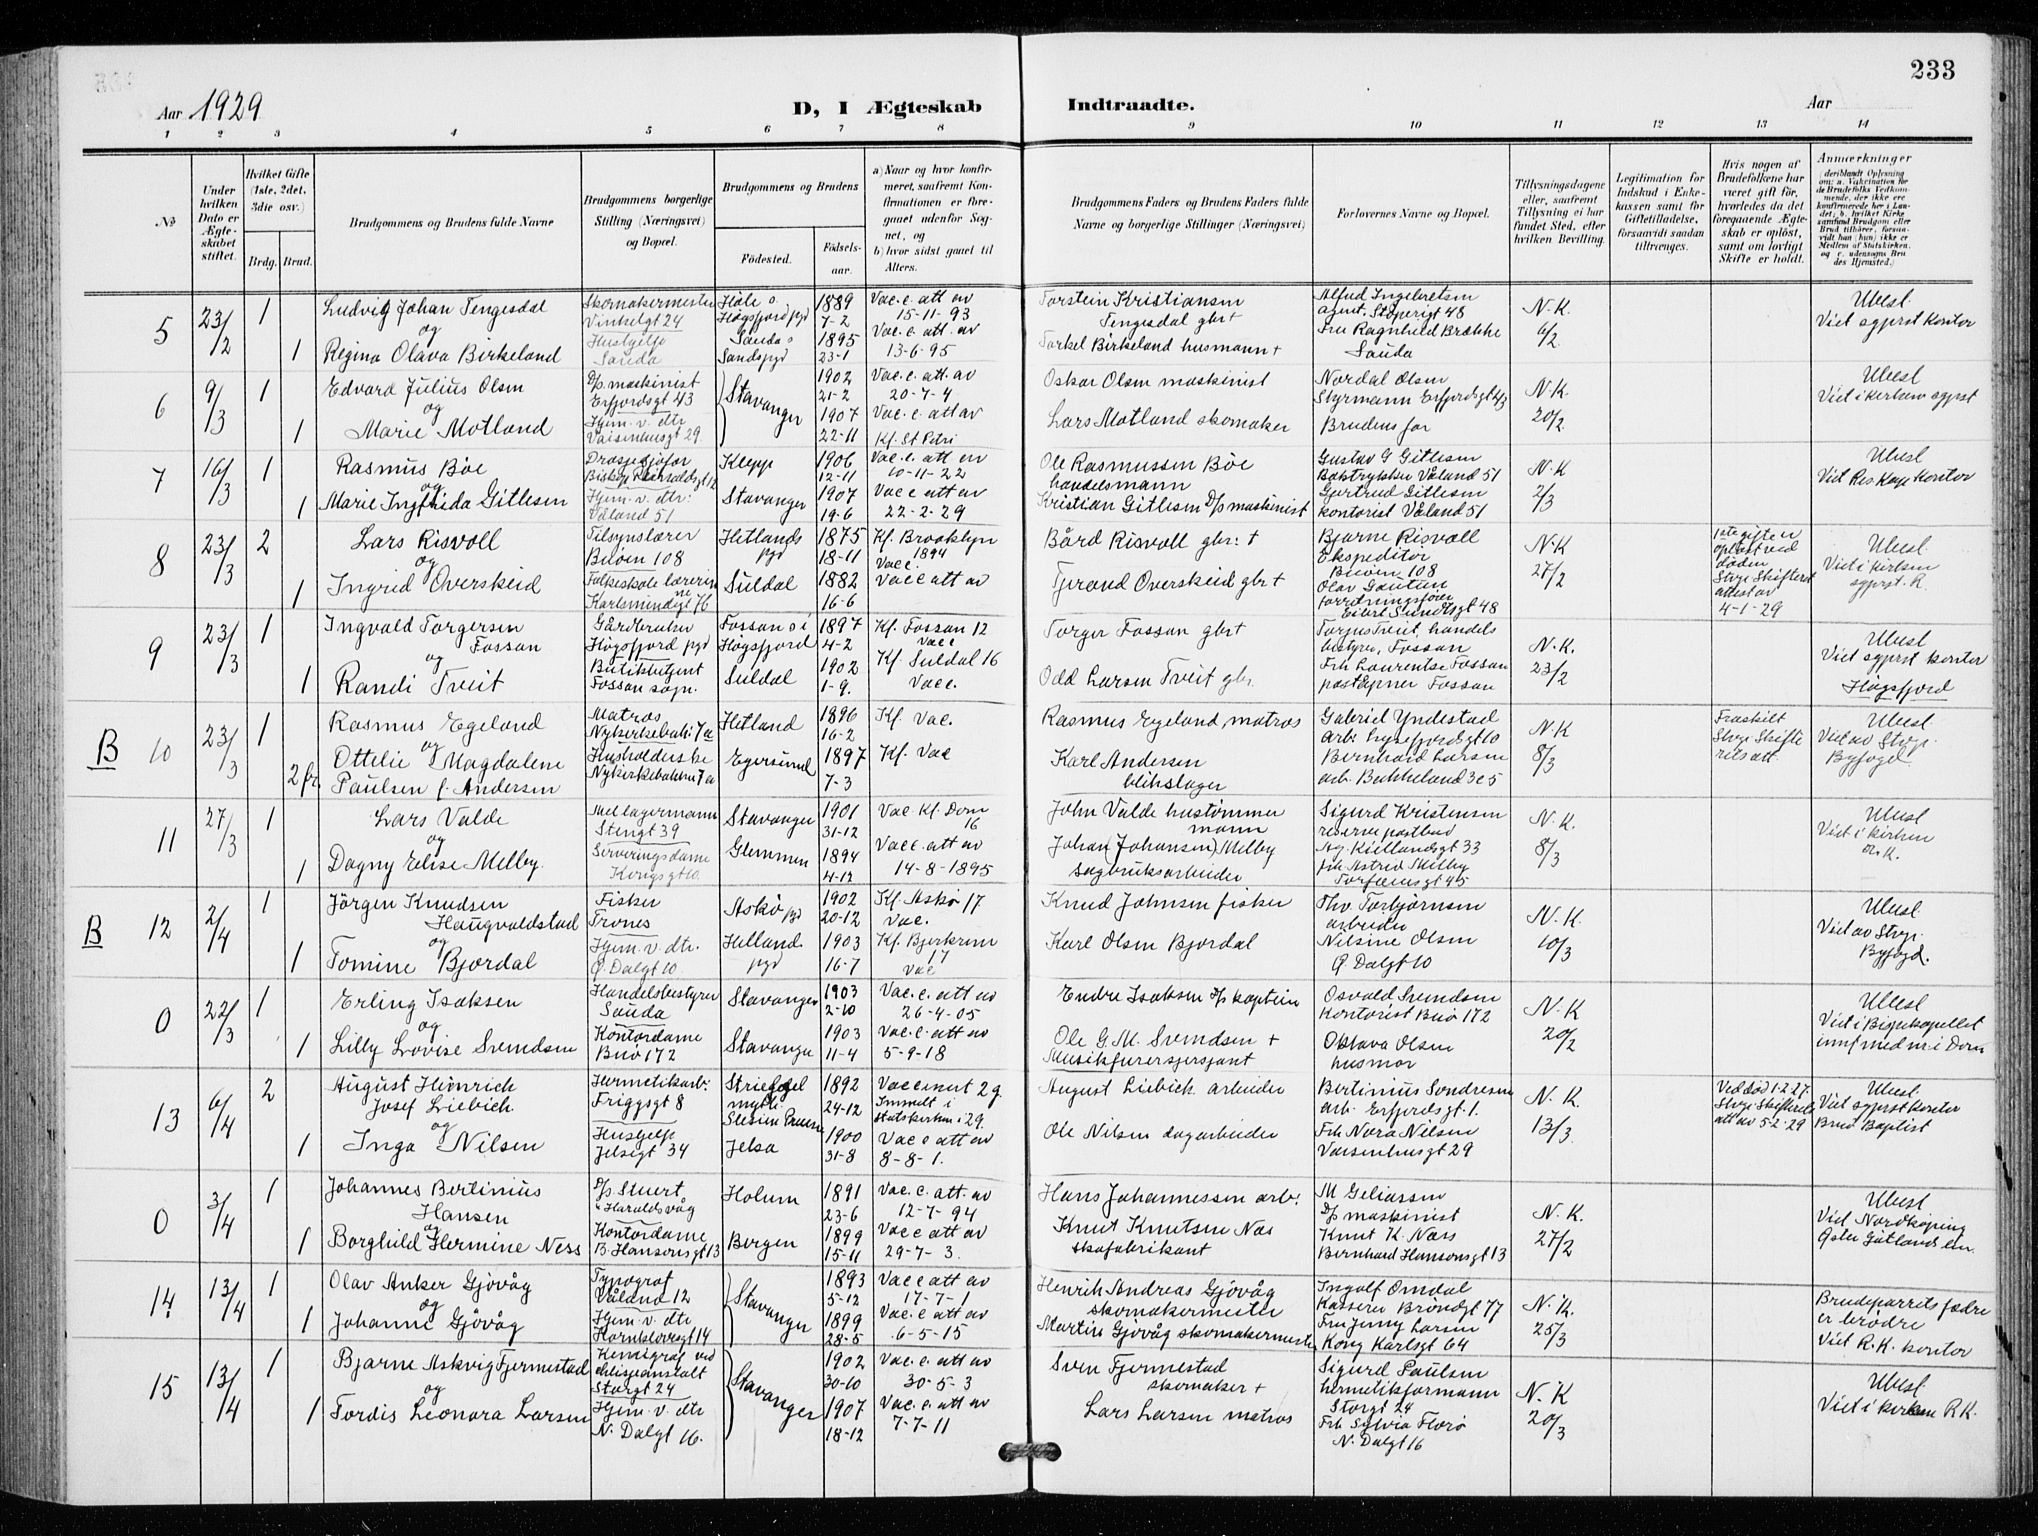 233
Aar 1929
D, I Ægteskab
Indtraadte.
Aar
1 2 3 4 5 6 7 8 9 10 11 12 13 14
No
Under hvilken Dato er Ægteskabet stiftet.
Hvilket Gifte (1ste, 2det, 3die osv.)
Brdg. Brud.
Brudgommens og Brudens fulde Navne
Brudgommens borgerlige Stilling (Næringsvei) og Bopæl.
Brudgommens og Brudens
Fødested.
Fødselsaar.
a) Naar og hvor konfirmeret, saafremt Konfirmationen er foregaaet udenfor Sognet, og
b) hvor sidst gaaet til Alters.
Brudgommens Faders og Brudens Faders fulde Navne og borgerlige Stillinger (Næringsvei)
Forlovernes Navne og Bopæl.
Tillysningsdagene eller, saafremt Tillysning ei har fundet Sted, efter hvilken Bevilling.
Legitimation for Indskud i Enkekassen samt for Giftetilladelse, forsaavidt saadan tiltrænges.
Hvis nogen af Brudefolkene har været gift før, hvorledes da det foregaaende Ægteskab er opløst, samt om lovligt Skifte er holdt.
Anmærkninger
5
23/2
1
1
Ludvig Johan Tengesdal
og
Regina Olava Birkeland
Skomakermester
Vinkelgt 24
Hushjelp
Sauda
Høle s.
Høgsfjord pgd
Sauda s
Sands pgd
1889
7-2
1895
23-1
Vac. c. att av
15-11-93
Vac. c. att. av
13-6-95
Torstein Kristiansen
Tengesdal gbr +
Torkel Birkeland husmann +
Alfred Ingebretsen
agent, Støperigt 48
Fru Ragnhild Brække
Sauda
N.K.
6/2
Ubesl.
Viet sgprst kontor
6
9/3
1
1
Edvard Julius Olsen
og
Marie Motland
D/s maskinist
Erfjordsgt 43
Hjem. v. dtr
Vaisenhusgt 29.
Stavanger
1902
21-2
1907
22-11
Vac. c. att. av
20-7-4
Vac. c. att av
Kf. St Petri
Oskar Olsen maskinist
Lars Motland skomaker
Nordal Olsen
Styrmann Erfjordsgt 43
Brudens far
N.K.
20/2
Ubesl
Viet i kirken sgprst
7
16/3
1
1
Rasmus Bøe
og
Marie Ingfrida Gitlesen
Drosjesjåfør
Hjem. v. dtr.
Våland 51
Klepp
Stavanger
1906
12-11
1907
19-6
Vac. c. att av
10-11-22
Vac c att av
22-2-29
Ole Rasmussen Bøe
handelsmann
Kristian Gitlesen D/s maskinist
Gustav G Gitlesen
Boktrykker Våland 51
Gjertrud Gitlesen
kontorist Våland 51
N.K
2/3
Ubesl
Viet Res. Kap. Kontor
8
23/3
2
1
Lars Risvoll
og
Ingrid Overskeid
Tilsynslærer
Buøen 108
Folkeskolelærerinne
Karlsmindegt 76
Hetlands
pgd
Suldal
1875
18-11
1882
16-6
Kf. Brooklyn
1894
Vac c.
Vac c att av
Bård Risvoll gbr. †
Tjerand Overskeid gbr +
Bjarne Risvoll
Ekspeditør
Buøen 108
Olav
forretningsfører
Eilert Sundtsgt 48
N.K
27/2
1ste gifte er
opløst ved
døden
Stvgr Skifteret
attest av
4-1-29
Ubesl.
Viet i kirken
sgprst. R.
9
23/3
1
1
Ingvald Torgersen
Fossan
og
Randi Tveit
Gårdbruker
Høgsfjord pgd
Butikbetjent
Fossan sogn.
Fossan s i
Høgsfjord
Suldal
1897
4-2
1902
1-9.
Kf. Fossan 12
Vac c
Kf. Suldal 16
Vac c.
Torger Fossan gbr +
Odd Larsen Tveit gbr.
Torjus Tveit, handels
bestyrer, Fossan
Frk Laurentse Fossan
poståpner Fossan
N.K.
23/2
Ubesl
Viet sgprst kontor
Høgsfjord
B
10
23/3
1
2 fr.
Rasmus Egeland
og
Ottelie Magdalene
Paulsen f. Andersen
Matros
Nykirkebakk. 7a
Husholderske
Nykirkebakken 7a
Hetland
Egersund
1896
16-2
1897
7-3
Kf. Vac.
Kf. Vac
Rasmus Egeland, matros
Karl Andersen
blikslager
Gabriel Yndestad
arb. Lysefjordsgt 10
Bernhard Larsen
arb. Bakkeland 3 c 5
N.K
8/3
Fraskilt
Stvgr Skifte
rets att.
Ubesl
Viet av Stvgr.
Byfogd
11
27/3
1
1
Lars Valde
og
Dagny Elise Melby.
Mellagermann
Stengt 39
Serveringsdame
Kongsgt 10.
Stavanger
Glemmen
1901
31-12
1894
4-12
Vac Kf. Dom
16
Vac c. att av
14-8-1895
John Valde hustømmer
mann
Johan (Johansen) Melby
sagbruksarbeider
Sigurd Kristensen
reserve postbud
Ag. Kiellandsgt 33
frk Astrid Melby
Torfæusgt 45
N.K.
8/3
Ubesl
Viet i kirken
B
12
2/4
1
1
Jørgen Knudsen
Haugvaldstad
og
Tomine Bjordal
Fisker
Tvones
Hjem. v. dtr.
Ø. Dalgt 10.
Askø pgd
Helland
pgd
1902
20-12
1903
16-7
Kf. Askø 17
Vac.
Kf. Bjerkreim
17
Vac
Knud Johnsen fisker
Karl Olsen Bjordal
Thv. Torbjørnsen
arbeider
Nilsine Olsen
Ø. Dalgt 10
N.K.
10/3
Ubesl.
Viet av Stvgr.
Byfogd.
0
22/3
1
1
Erling Isaksen
og
Lilly Lovise Svendsen
Handelsbestyrer
Sauda
Kontordame
Buø 172
Stavanger
Stavanger
1903
2-10
1903
11-4
Vac. c. att av
26-4-05
Vac. c. att av
5-9-18
Endre Isaksen D/s kaptein
Ole G. M. Svendsen +
Musikfurersjersjant
Osvald Svendsen
Kontorist Buø 172
Oktava Olsen
husmor
N.K
20/2
Ubesl
Viet i Bispekapellet
innf med nr i Dom
13
6/4
2
1
August Heinrich
Josef Liebich
og
Inga Nilsen
Hermetikarb.
Friggsgt 8
Hushjelp
Jelsagt 34
Jelsa
1892
24-12
1900
31-8
Vaccinert 2 g.
Innmeldt i
Statskirken i 29.
Vac c att av
8-8-1.
August Liebich arbeider
Ole Nilsen dagarbeider
Bertinius Sondresen
arb. Erfjordsgt. 1.
Frk Nora Nilsen
Vaisenhusgt 29
N.K.
13/3
Ved død 1-2-27.
Stvgr Skifterets
att av 5-2-29
Ubesl
Viet sgprst kontor
Brud Baptist
0
3/4
1
1
Johannes Bertinius
Hansen
og
Borghild Hermine Ness
D/s Stuert
"Haraldsvåg
Kontordame
B. Hansensgt 13
Holum
Bergen
1891
23-6
1899
15-11
Vac. c. att. av
12-7-94
Vac c att av
29-7-3.
Hans Johannessen arb.
Knut Knutsen Næs
skofabrikant
M Geliassen
D/s maskinist
Knut K. Næss
Bernhard Hansensgt 13
N.K.
27/2
Ubesl
Viet Nordkøping
Øster Gøtlands len
14
13/4
1
1
Olav Anker Gjøvåg
og
Johanne Gjøvåg
Typograf
Våland 12
Hjem. v. dtr
Hornklovesgt 14
Stavanger
1893
5-12
1899
28-5
Vac c att av
17-7-1
Vac. c att av
6-5-15
Henrik Andreas Gjøvåg
skomakermester
Martin Gjøvåg skomakermester
Ingolf Omdal
Kasserer Brøndgt 77
Fru Jenny Larsen
Kong Karlsgt 64
N.K.
25/3
Brudeparrets fædre
er brødre
Viet R.K. kontor
15
13/4
1
1
Bjarne Askvig Fjermestad
og
Tordis Leonora Larsen
Kemigraf ved
clisjeanstalt
Storgt 24
Hjem. v. dtr
N. Dalgt 16.
Stavanger
1902
30-10
1907
18-12
Vac. c. att av
30-5-3
Vac. c. att av
7-7-11
Sven Fjermestad
skomaker +
Lars Larsen matros
Sigurd Paulsen
hermetikformann
Storgt 24
Frk Sylvia Florø
N. Dalgt 16
N.K
20/3
Ubesl
Viet i kirken R.K.